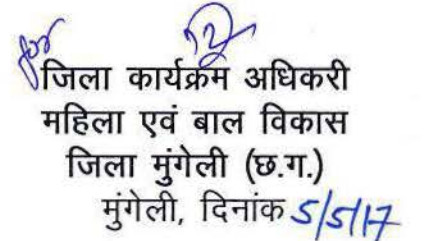 for
जिला कार्यक्रम अधिकरी
महिला एवं बाल विकास
जिला मुंगेली (छ.ग.)
मुंगेली, दिनांक 5/5/17